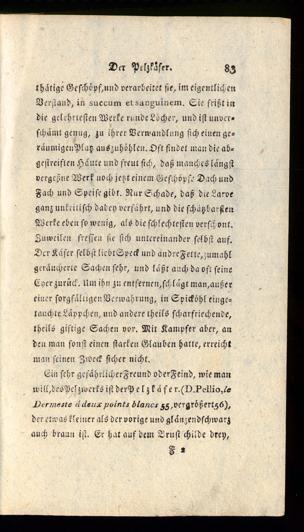 Der Pelzkäfer. 83
thätige Geschöpf, und verarbeitet sie, im eigentlichen
Verstand, in succum et sanguinem. Sie frißt in
die gelehrtesten Werke runde Löcher, und ist unver-
schämt genug, zu ihrer Verwandlung sich einen ge-
räumigen Platz auszuhöhlen. Oft findet man die ab-
gestreiften Häute und freut sich, daß manches längst
vergeßne Werk noch jetzt einem Geschöpfe Dach und
Fach und Speise gibt. Nur Schade, daß die Larve
ganz unkritisch dabey verfährt, und die schätzbarsten
Werke eben so wenig, als die schlechtesten verschont.
Zuweilen fressen sie sich untereinander selbst auf.
Der Käfer selbst liebt Speck und andre Fette, zumahl
geräucherte Sachen sehr, und läßt auch da oft seine
Eyer zurück. Um ihn zu entfernen, schlägt man, außer
einer sorgfältigen Verwahrung, in Spicköhl einge-
tauchte Läppchen, und andere theils scharfriechende,
theils giftige Sachen vor. Mit Kampfer aber, an
den man sonst einen starken Glauben hatte, erreicht
man seinen Zweck sicher nicht.
Ein sehr gefährlicher Freund oder Feind, wie man
will, des Pelzwerks ist der Pelzkäfer. (D. Pellio, le
Dermeste à deux points blancs 55, vergrößert 56),
der etwas kleiner als der vorige und glänzend schwarz
auch braun ist. Er hat auf dem Brustschilde drey,
F 2